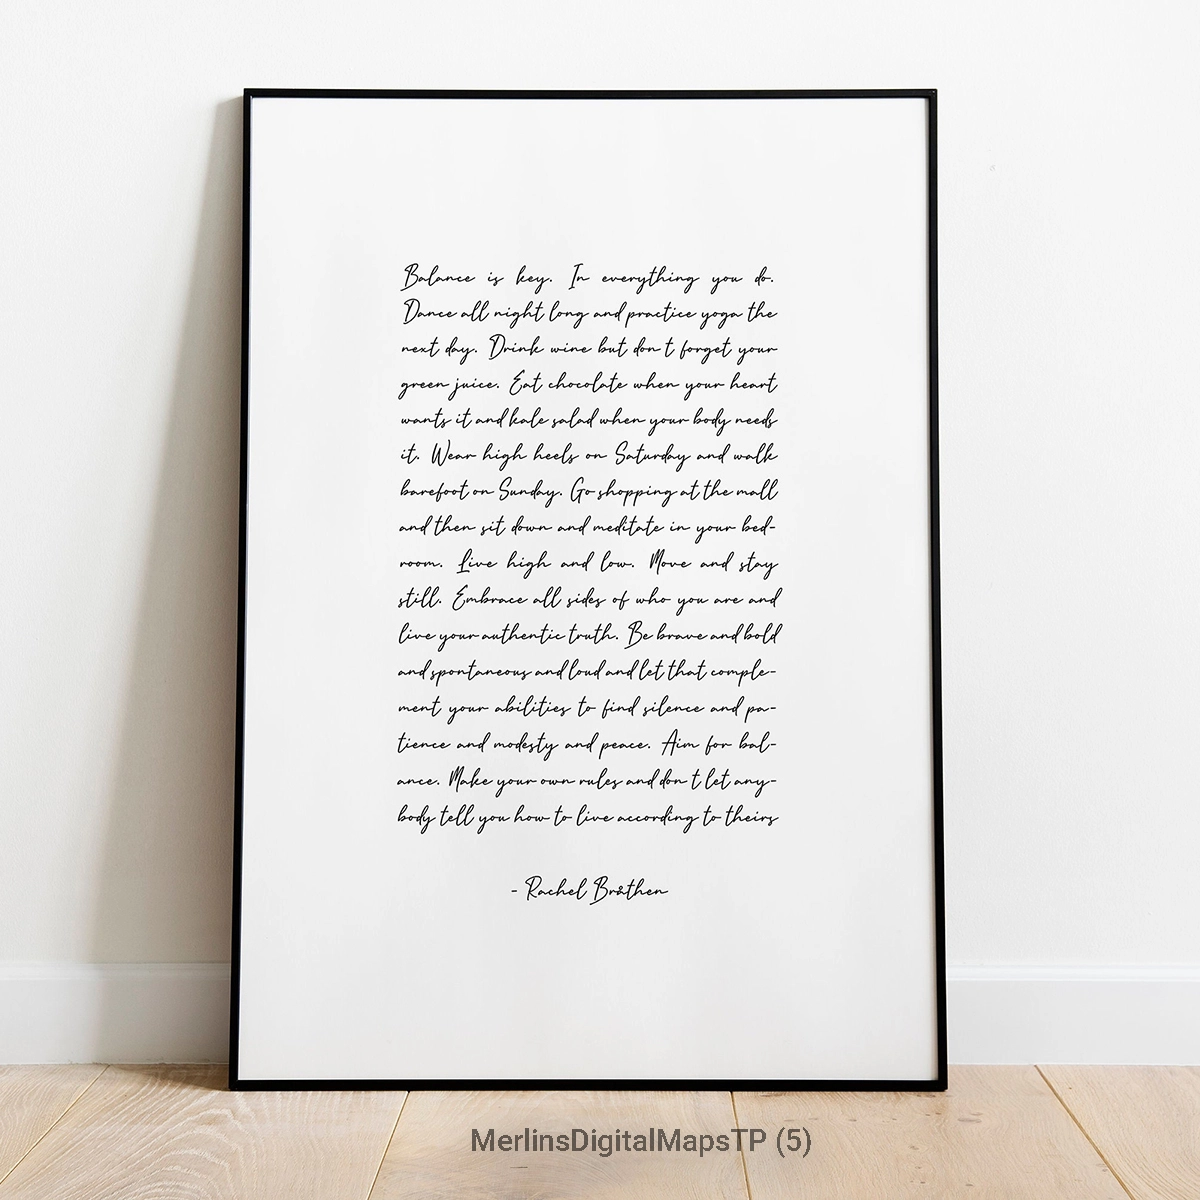 Balance is key. In everything you do.
Dance all night long and practice yoga the
next day. Drink wine but don t forget your
green juice. Eat chocolate when your heart
wants it and kale salad when your body needs
it. Wear high heels on Saturday and walk
barefoot on Sunday. Go shopping at the mall
and then sit down and meditate in your bed-
room. Live high and low. Move and stay
still. Embrace all sides of who you are and
live your authentic truth. Be brave and bold
and spontaneous and loud and let that comple-
ment your abilities to find silence and pa-
tience and modesty and peace. Aim for bal-
ance. Make your own rules and don t let any-
body tell you how to live according to theirs
- Rachel Bråthen
MerlinsDigitalMapsTP (5)